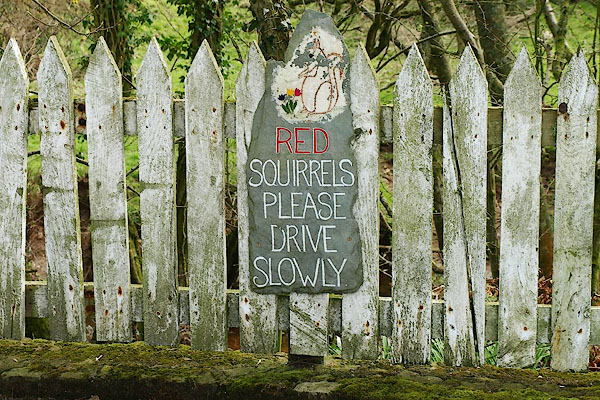 RED
SQUIRRELS
PLEASE
DRIVE
SLOWLY